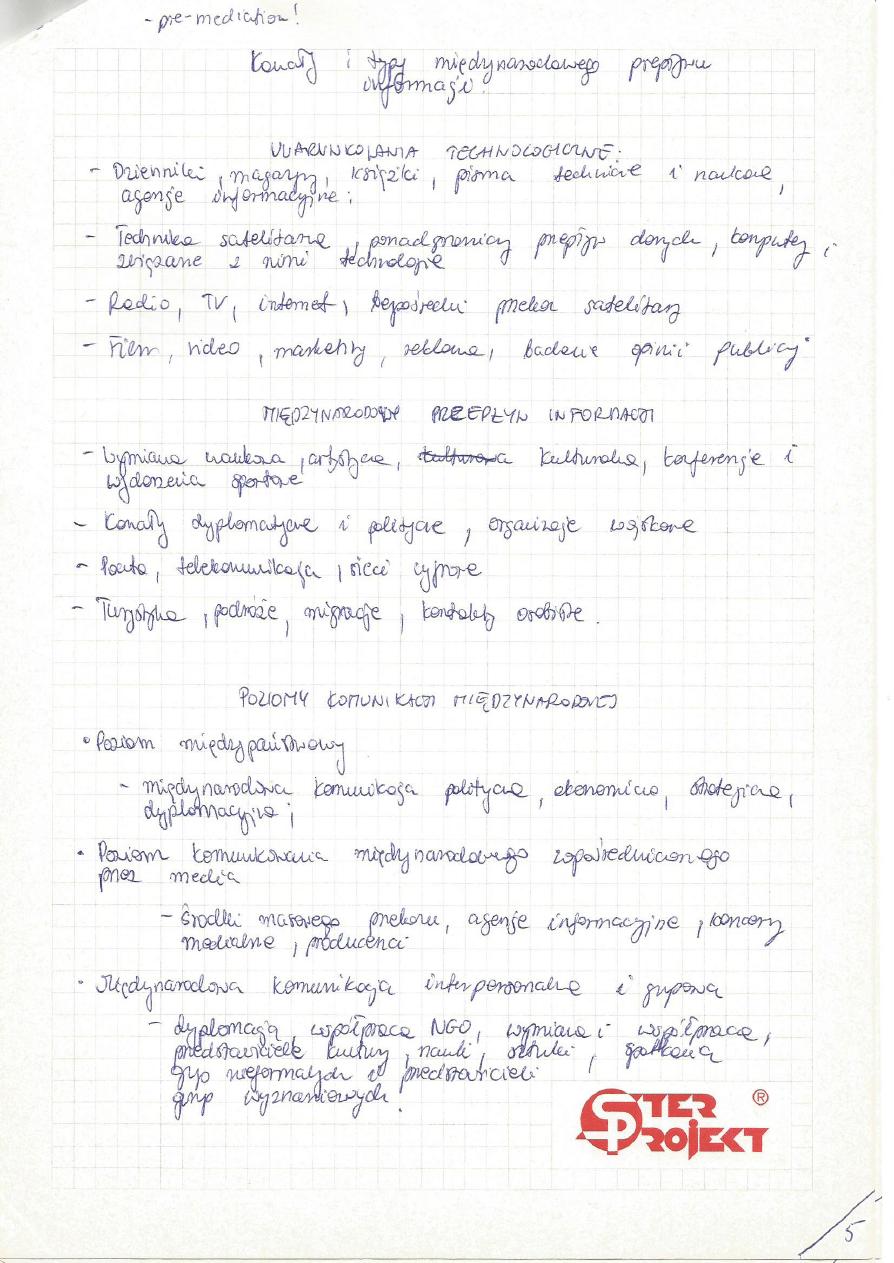 - pre-mediation!
Kanały i typy międzynarodowego przepływu
informacji.
UWARUNKOWANIA TECHNOLOGICZNE:
- Dzienniki, magazyny, książki, pisma techniczne i naukowe,
agencje informacyjne;
- Technika satelitarna, ponadgraniczny przepływ danych, komputery i
związane z nimi technologie
- Radio, TV, internet, bezpośredni przekaz satelitarny
- Film, video, marketing, reklama, badanie opinii publicznej
MIĘDZYNARODOWY PRZEPŁYW INFORMACJI
- Wymiana naukowa, artystyczna, kulturowa kulturalna, konferencje i
wydarzenia sportowe
- Kanały dyplomatyczne i polityczne, organizacje wojskowe
- Poczta, telekomunikacja, sieci cyfrowe
- Turystyka, podróże, migracje, kontakty osobiste.
POZIOMY KOMUNIKACJI MIĘDZYNARODOWEJ
• Poziom międzypaństwowy
- międzynarodowa komunikacja polityczna, ekonomiczna, strategiczna,
dyplomacyjna;
• Poziom komunikowania międzynarodowego zapośredniczonego
przez media
- Środki masowego przekazu, agencje informacyjne, koncerny
medialne, producenci
• Międzynarodowa komunikacja interpersonalna i grupowa
- dyplomacja, współpraca NGO, wymiana i współpraca,
przedstawiciele kultury, nauki, sztuki, spotkania
grup nieformalnych i przedstawicieli
grup wyznaniowych.
STER PROJEKT ®
5